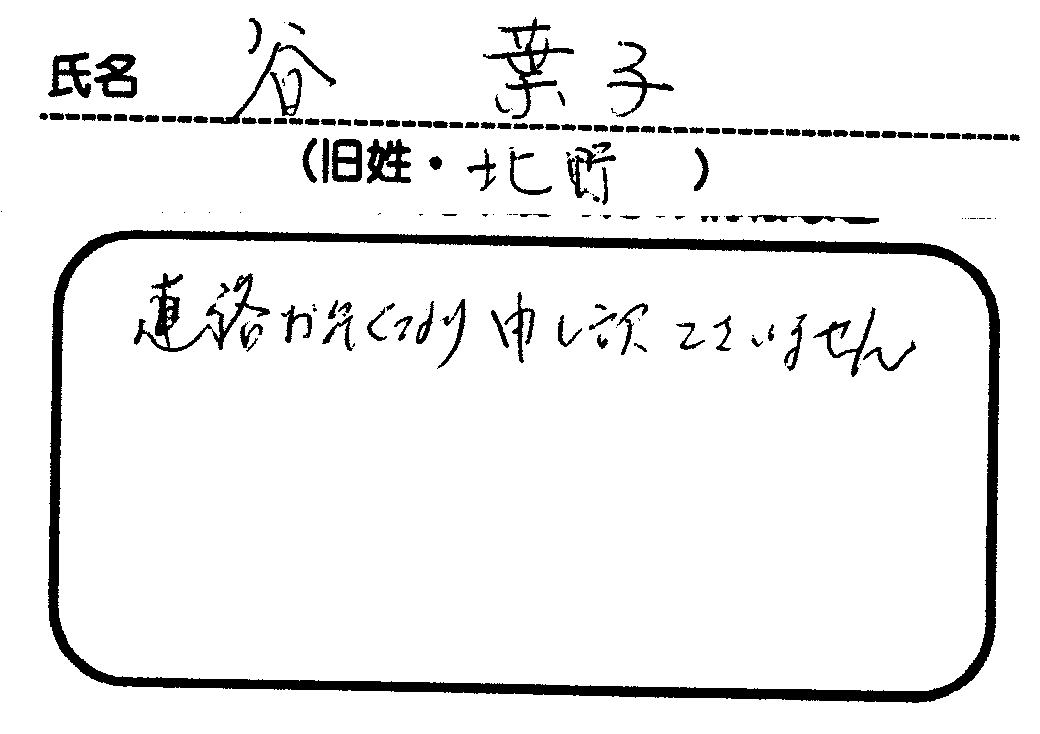 氏名 谷 葉子
(旧姓・北野 )
連絡がおそくなり申し訳ございません